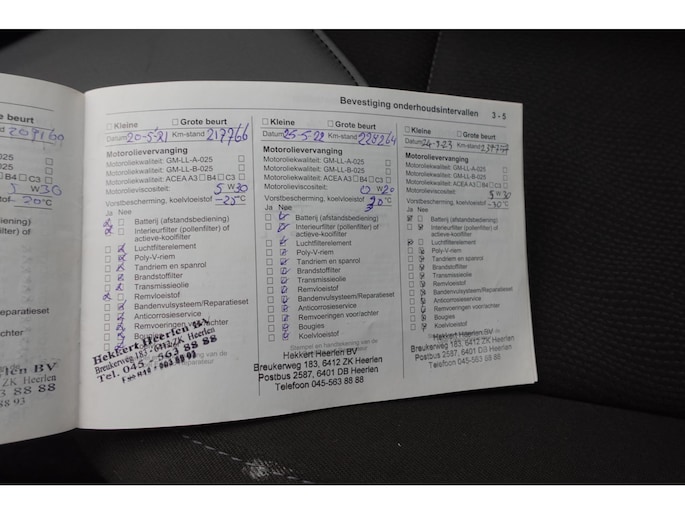 e beurt
209160
025
025
C3
5 W30
stof- 20°C
iening)
er) of
n
s
achter
erlen BV
ZK Heerlen
3 88 88
88 93
Bevestiging onderhoudsintervallen 3 - 5
Kleine Grote beurt
Datum 20-5-21 Km-stand 217766
Motorolievervanging
Motoroliekwaliteit: GM-LL-A-025
Motoroliekwaliteit: GM-LL-B-025
Motoroliekwaliteit: ACEA A3 B4 C3
Motorolieviscositeit: 5 W30
Vorstbescherming, koelvloeistof -25°C
Ja Nee
Batterij (afstandsbediening)
Interieurfilter (pollenfilter) of
actieve-koolfilter
Luchtfilterelement
Poly-V-riem
Tandriem en spanrol
Brandstoffilter
Transmissieolie
Remvloeistof
Bandenvulsysteem/Reparatieset
Anticorrosieservice
Remvoeringen voor/achter
Bougies
Koelvloeistof
Hekkert Heerlen BV
Breukerweg 183, 6412 ZK Heerlen
Tel. 045 - 563 88 88
Kleine Grote beurt
Datum 25-5-22 Km-stand 228264
Motorolievervanging
Motoroliekwaliteit: GM-LL-A-025
Motoroliekwaliteit: GM-LL-B-025
Motoroliekwaliteit: ACEA A3 B4 C3
Motorolieviscositeit: 0 W 20
Vorstbescherming, koelvloeistof 30°C
Ja Nee
Batterij (afstandsbediening)
Interieurfilter (pollenfilter) of
actieve-koolfilter
Luchtfilterelement
Poly-V-riem
Tandriem en spanrol
Brandstoffilter
Transmissieolie
Remvloeistof
Bandenvulsysteem/Reparatieset
Anticorrosieservice
Remvoeringen voor/achter
Bougies
Koelvloeistof
Stempel en handtekening van de
Hekkert Heerlen BV
Breukerweg 183, 6412 ZK Heerlen
Postbus 2587, 6401 DB Heerlen
Telefoon 045-563 88 88
Kleine Grote beurt
Datum Km-stand
Motorolievervanging
Motoroliekwaliteit: GM-LL-A-025
Motoroliekwaliteit: GM-LL-B-025
Motoroliekwaliteit: ACEA A3 B4 C3
Motorolieviscositeit: 5 W 30
Vorstbescherming, koelvloeistof -30°C
Ja Nee
Batterij (afstandsbediening)
Interieurfilter (pollenfilter) of
actieve-koolfilter
Luchtfilterelement
Poly-V-riem
Tandriem en spanrol
Brandstoffilter
Transmissieolie
Remvloeistof
Bandenvulsysteem/Reparatieset
Anticorrosieservice
Remvoeringen voor/achter
Bougies
Koelvloeistof
Hekkert Heerlen BV
Breukerweg 183, 6412 ZK Heerlen
Postbus 2587, 6401 DB Heerlen
Telefoon 045-563 88 88